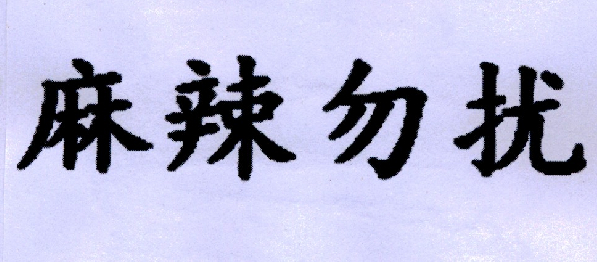 麻辣勿扰